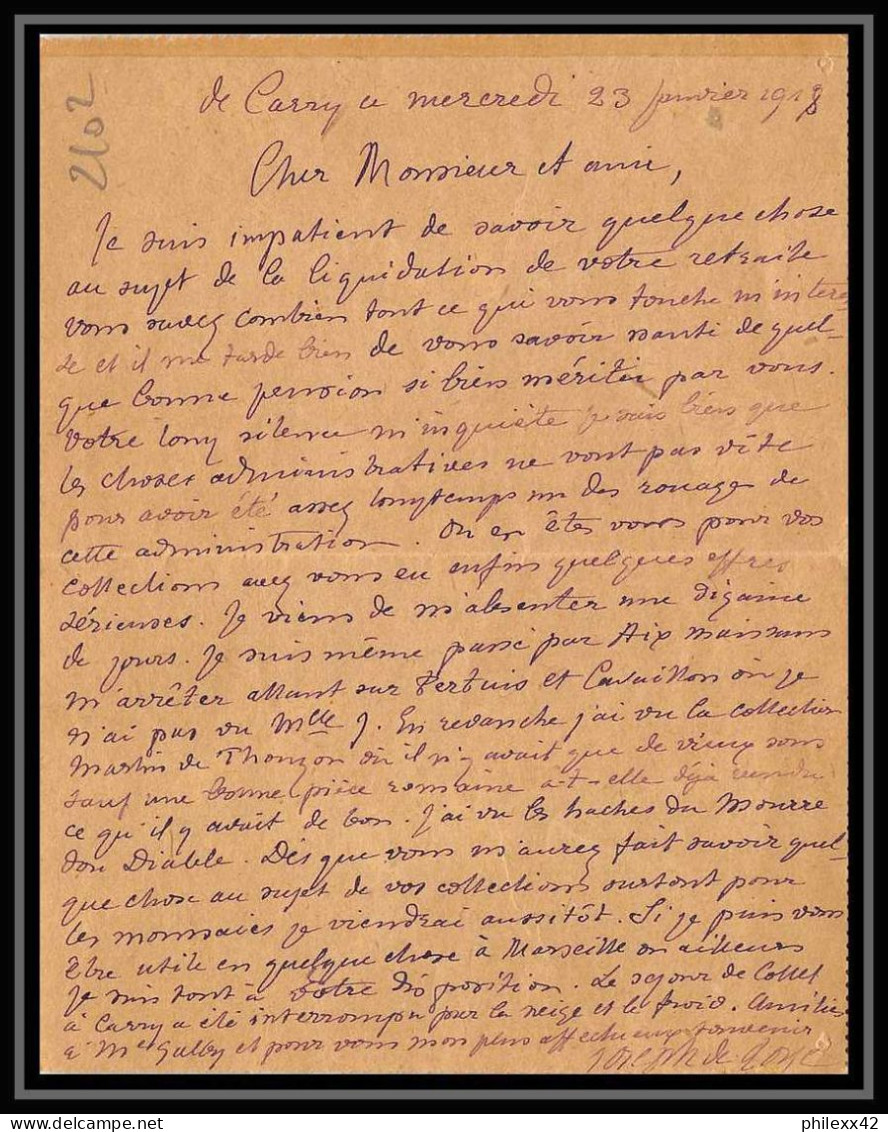 2102
de Carry ce mercredi 23 janvier 1918
Cher Monsieur et ami,
Je suis impatient de savoir quelque chose
au sujet de la liquidation de votre retraite
vous savez combien tout ce qui vous touche m'intéres-
se et il me tarde bien de vous savoir nanti de quel-
que bonne pension si bien méritée par vous.
Votre long silence m'inquiète je sais bien que
les choses administratives ne vont pas vite
pour avoir été assez longtemps un des rouages de
cette administration. Ou en êtes vous pour vos
collections avez vous eu enfin quelques offres
sérieuses. Je viens de m'absenter une dizaine
de jours. Je suis même passé par Aix mais sans
m'arrêter allant sur Pertuis et Cavaillon où je
n'ai pas vu Mlle J. En revanche j'ai vu la collection
Martin de Thouzon où il n'y avait que de vieux sous
sauf une bonne pièce romaine a-t-elle déjà vendu
ce qu'il y avait de bon. J'ai vu les haches du Mourre
dou Diable. Dès que vous m'aurez fait savoir quel-
que chose au sujet de vos collections surtout pour
les monnaies je viendrai aussitôt. Si je puis vous
être utile en quelque chose à Marseille ou ailleurs
je suis tout à votre disposition. Le séjour de
à Carry a été interrompu par la neige et le froid. Amitiés
à Me et pour vous mon plus affectueux souvenir
Joseph de
philexx42